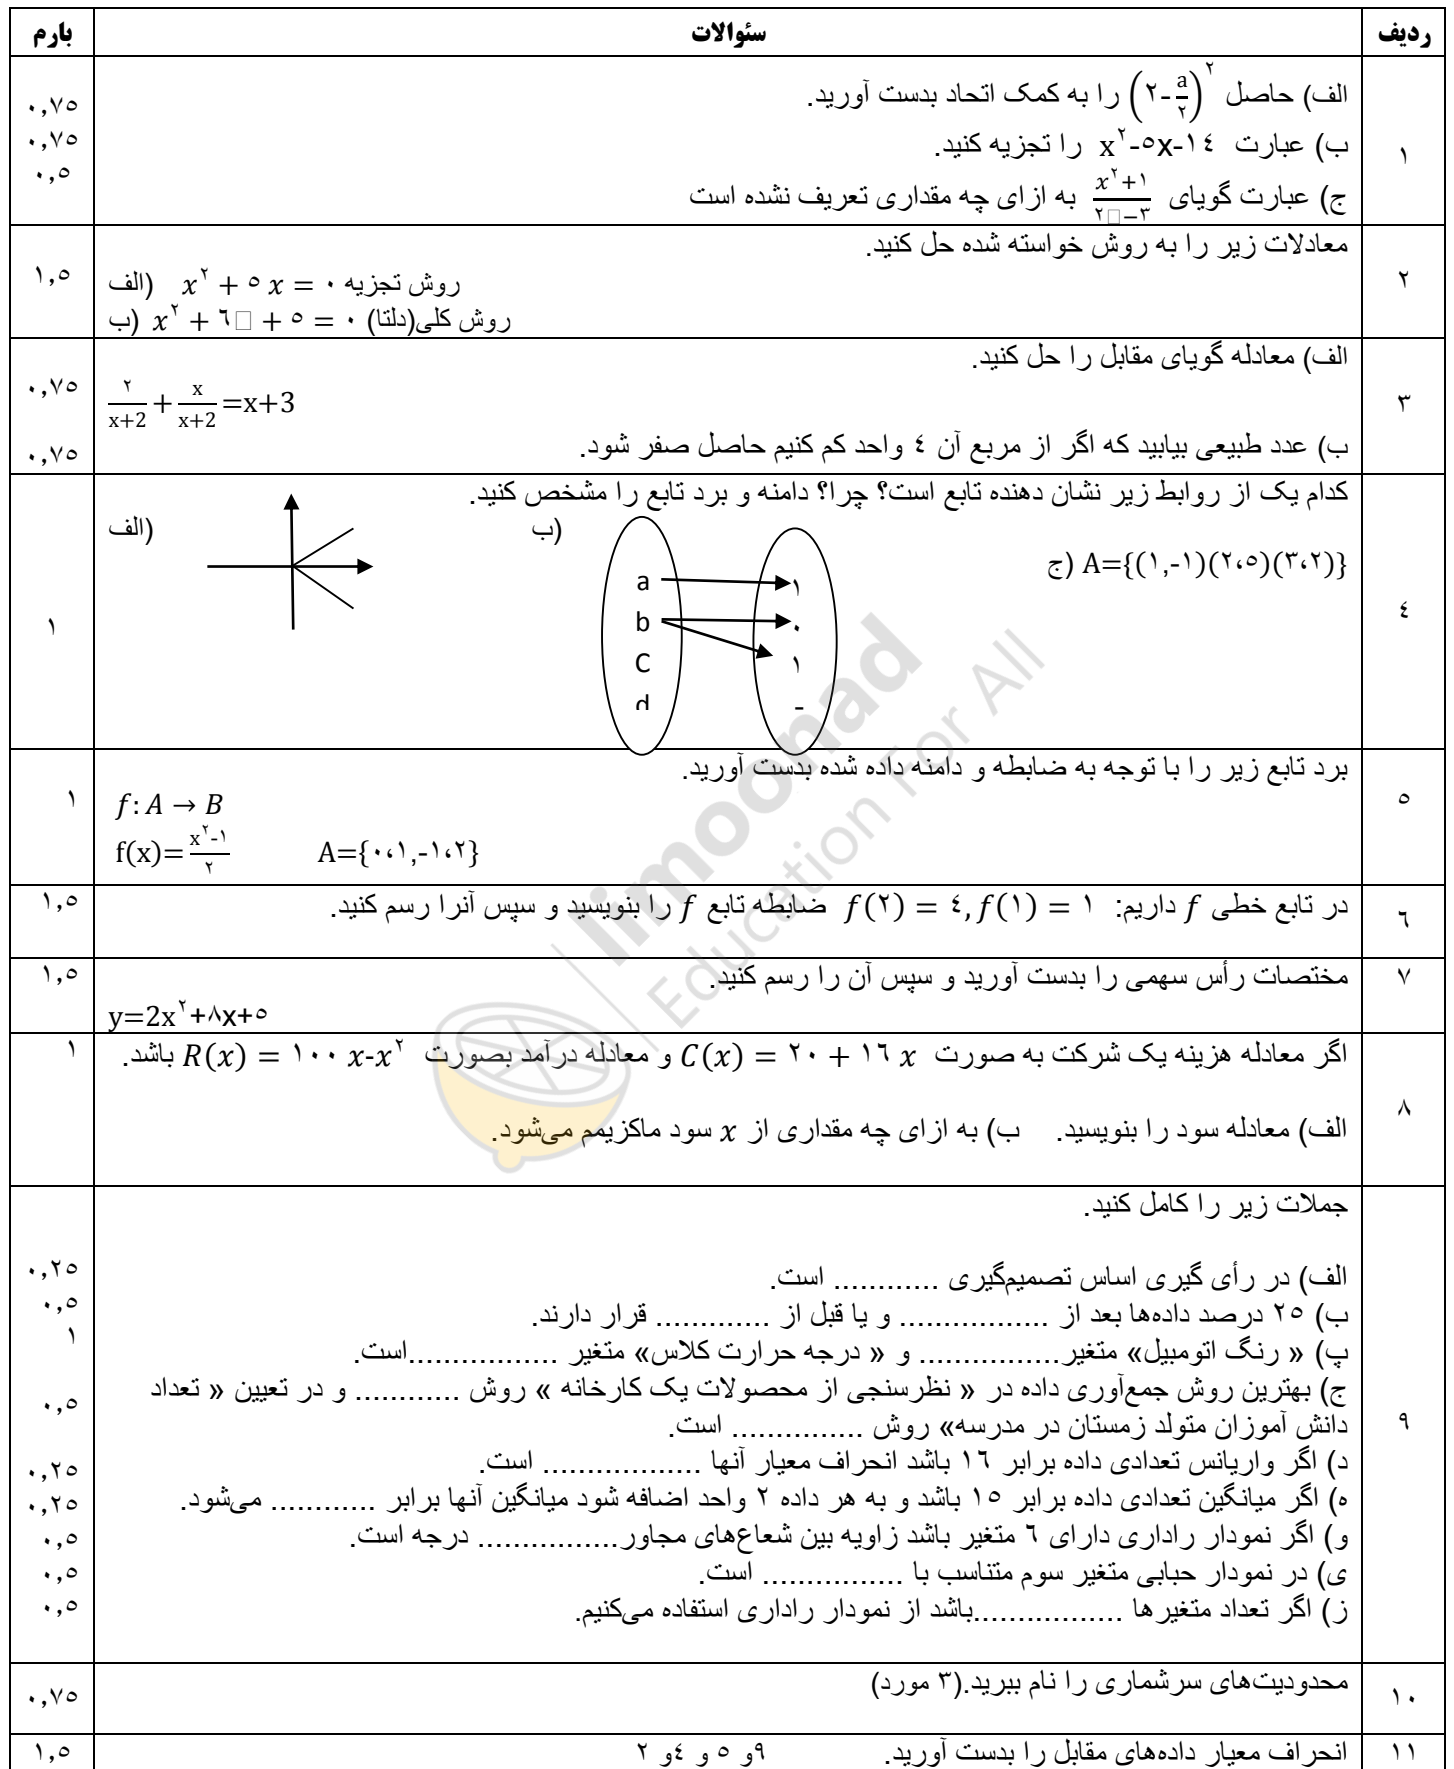 ردیف سئوالات بارم
۱
الف) حاصل (a/۲ - ۲)^۲ را به کمک اتحاد بدست آورید. ۰,۷۵
ب) عبارت x^۲-۵x-۱۴ را تجزیه کنید. ۰,۷۵
ج) عبارت گویای (x^۲+۱)/(۲□−۳) به ازای چه مقداری تعریف نشده است ۰,۵
۲
معادلات زیر را به روش خواسته شده حل کنید. ۱,۵
الف) x^۲ + ۵ x = ۰ روش تجزیه
ب) x^۲ + ۶□ + ۵ = ۰ روش کلی(دلتا)
۳
الف) معادله گویای مقابل را حل کنید. ۰,۷۵
۲/(x+2) + x/(x+2) =x+3
ب) عدد طبیعی بیابید که اگر از مربع آن ۴ واحد کم کنیم حاصل صفر شود. ۰,۷۵
۴
کدام یک از روابط زیر نشان دهنده تابع است؟ چرا؟ دامنه و برد تابع را مشخص کنید. ۱
الف)
ب)
ج) A={(۱,-۱)(۲،۵)(۳،۲)}
a ۱
b ۰
C ۱
d -
۵
برد تابع زیر را با توجه به ضابطه و دامنه داده شده بدست آورید. ۱
f: A → B
f(x)=(x^۲-۱)/۲ A={۰،۱,-۱،۲}
۶
در تابع خطی f داریم: f(۲) = ۴, f(۱) = ۱ ضابطه تابع f را بنویسید و سپس آنرا رسم کنید. ۱,۵
۷
مختصات رأس سهمی را بدست آورید و سپس آن را رسم کنید. ۱,۵
y=2x^۲+۸x+۵
۸
اگر معادله هزینه یک شرکت به صورت C(x) = ۲۰ + ۱۶ x و معادله درآمد بصورت R(x) = ۱۰۰ x-x^۲ باشد. ۱
الف) معادله سود را بنویسید. ب) به ازای چه مقداری از x سود ماکزیمم می‌شود.
۹
جملات زیر را کامل کنید.
الف) در رأی گیری اساس تصمیم‌گیری ............ است. ۰,۲۵
ب) ۲۵ درصد داده‌ها بعد از ................. و یا قبل از ............. قرار دارند. ۰,۵
پ) « رنگ اتومبیل» متغیر................ و « درجه حرارت کلاس» متغیر .................است. ۱
ج) بهترین روش جمع‌آوری داده در « نظرسنجی از محصولات یک کارخانه » روش ............ و در تعیین « تعداد ۰,۵
دانش آموزان متولد زمستان در مدرسه» روش ............... است.
د) اگر واریانس تعدادی داده برابر ۱۶ باشد انحراف معیار آنها .................. است. ۰,۲۵
ه) اگر میانگین تعدادی داده برابر ۱۵ باشد و به هر داده ۲ واحد اضافه شود میانگین آنها برابر ............ می‌شود. ۰,۲۵
و) اگر نمودار راداری دارای ۶ متغیر باشد زاویه بین شعاع‌های مجاور................ درجه است. ۰,۵
ی) در نمودار حبابی متغیر سوم متناسب با ................ است. ۰,۵
ز) اگر تعداد متغیرها .................باشد از نمودار راداری استفاده می‌کنیم. ۰,۵
۱۰
محدودیت‌های سرشماری را نام ببرید.(۳ مورد) ۰,۷۵
۱۱
انحراف معیار داده‌های مقابل را بدست آورید. ۹و ۵ و ۴و ۲ ۱,۵
limoonad
Education For All